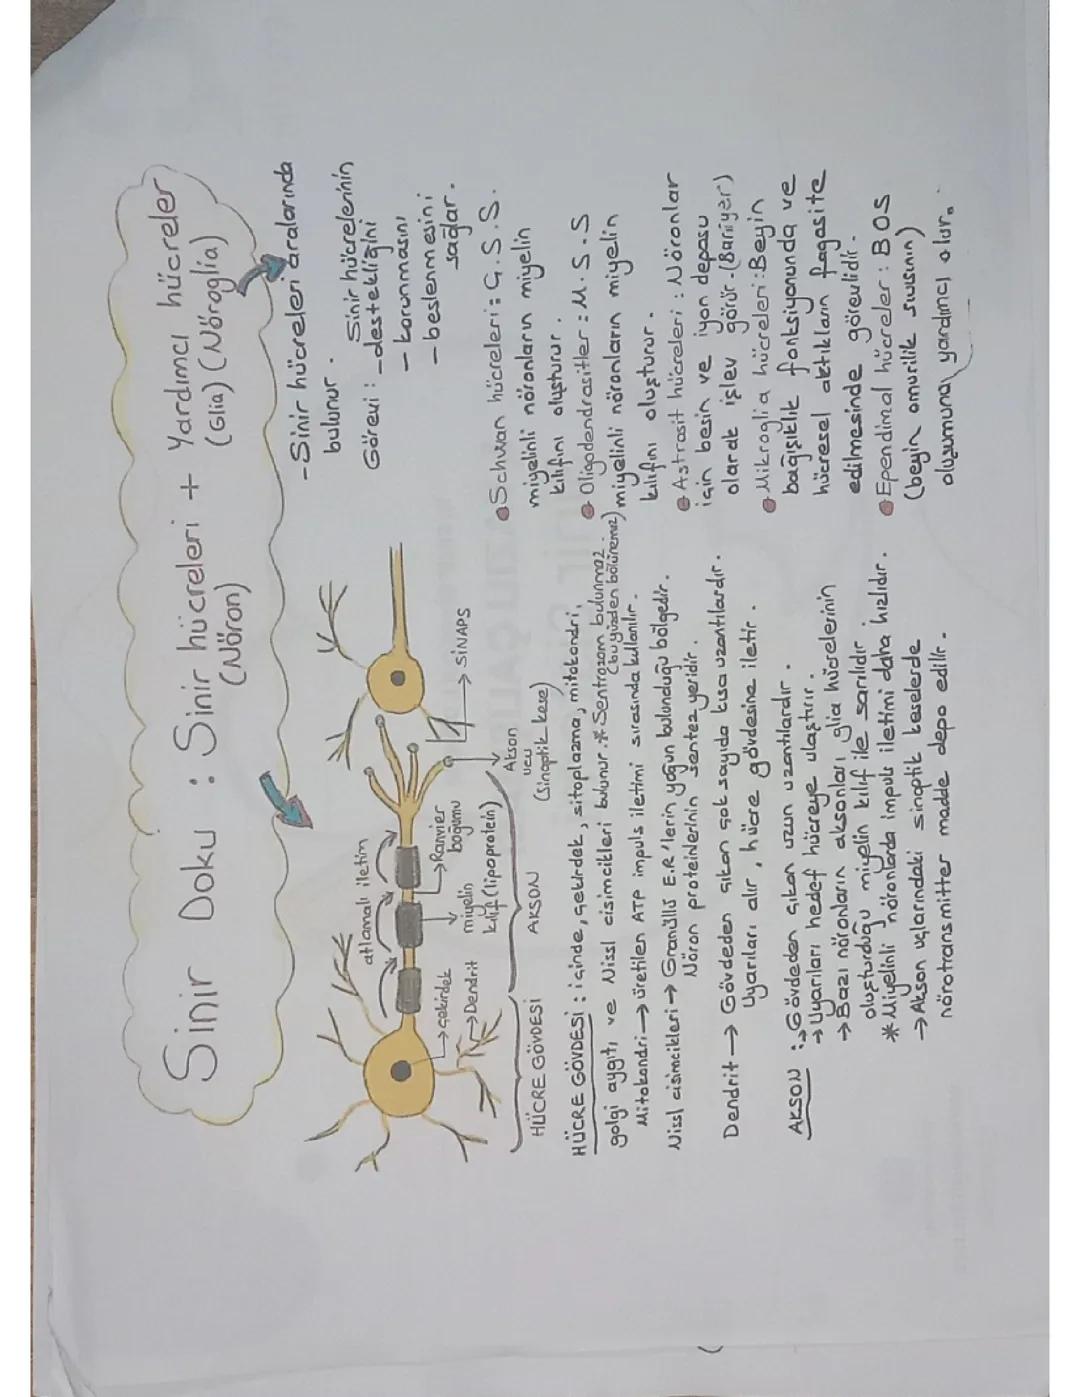 Sinir Doku : Sinir hücreleri + Yardımcı hücreler
(Nöron) (Glia) (Nöroglia)
- Sinir hücreleri aralarında
bulunur.
Sinir hücrelerinin
Görevi : - destekliğini
- korunmasını
- beslenmesini
sağlar.
atlamalı iletim
çekirdek
Dendrit
miyelin
kılıf (lipoprotein)
Ranvier
boğumu
Akson
ucu
(Sinaptik kese)
SİNAPS
HÜCRE GÖVDESİ
AKSON
HÜCRE GÖVDESİ : içinde, çekirdek, sitoplazma, mitokondri,
golgi aygıtı ve Nissl cisimcikleri bulunur. * Sentrozom bulunmaz.
(bu yüzden bölünemez)
Mitokondri → üretilen ATP impuls iletimi sırasında kullanılır.
Nissl cisimcikleri → Granüllü E.R'lerin yoğun bulunduğu bölgedir.
Nöron proteinlerinin sentez yeridir.
Dendrit → Gövdeden çıkan çok sayıda kısa uzantılardır.
Uyarıları alır, hücre gövdesine iletir.
AKSON : → Gövdeden çıkan uzun uzantılardır.
→ Uyarıları hedef hücreye ulaştırır.
→ Bazı nöronların aksonları glia hücrelerinin
oluşturduğu miyelin kılıf ile sarılıdır.
* Miyelinli nöronlarda impuls iletimi daha hızlıdır.
→ Akson uçlarındaki sinoptik keselerde
nörotransmitter madde depo edilir.
Schwan hücreleri : Ç.S.S.
miyelinli nöronların miyelin
kılıfını oluşturur.
Oligodendrositler : M.S.S
miyelinli nöronların miyelin
kılıfını oluşturur.
Astrosit hücreleri : Nöronlar
için besin ve iyon deposu
olarak işlev görür. (Bariyer)
Mikroglia hücreleri : Beyin
bağışıklık fonksiyonunda ve
hücresel aktıkların fagosite
edilmesinde görevlidir.
Ependimal hücreler : BOS
(beyin omurilik sıvısının)
oluşumuna yardımcı olur.